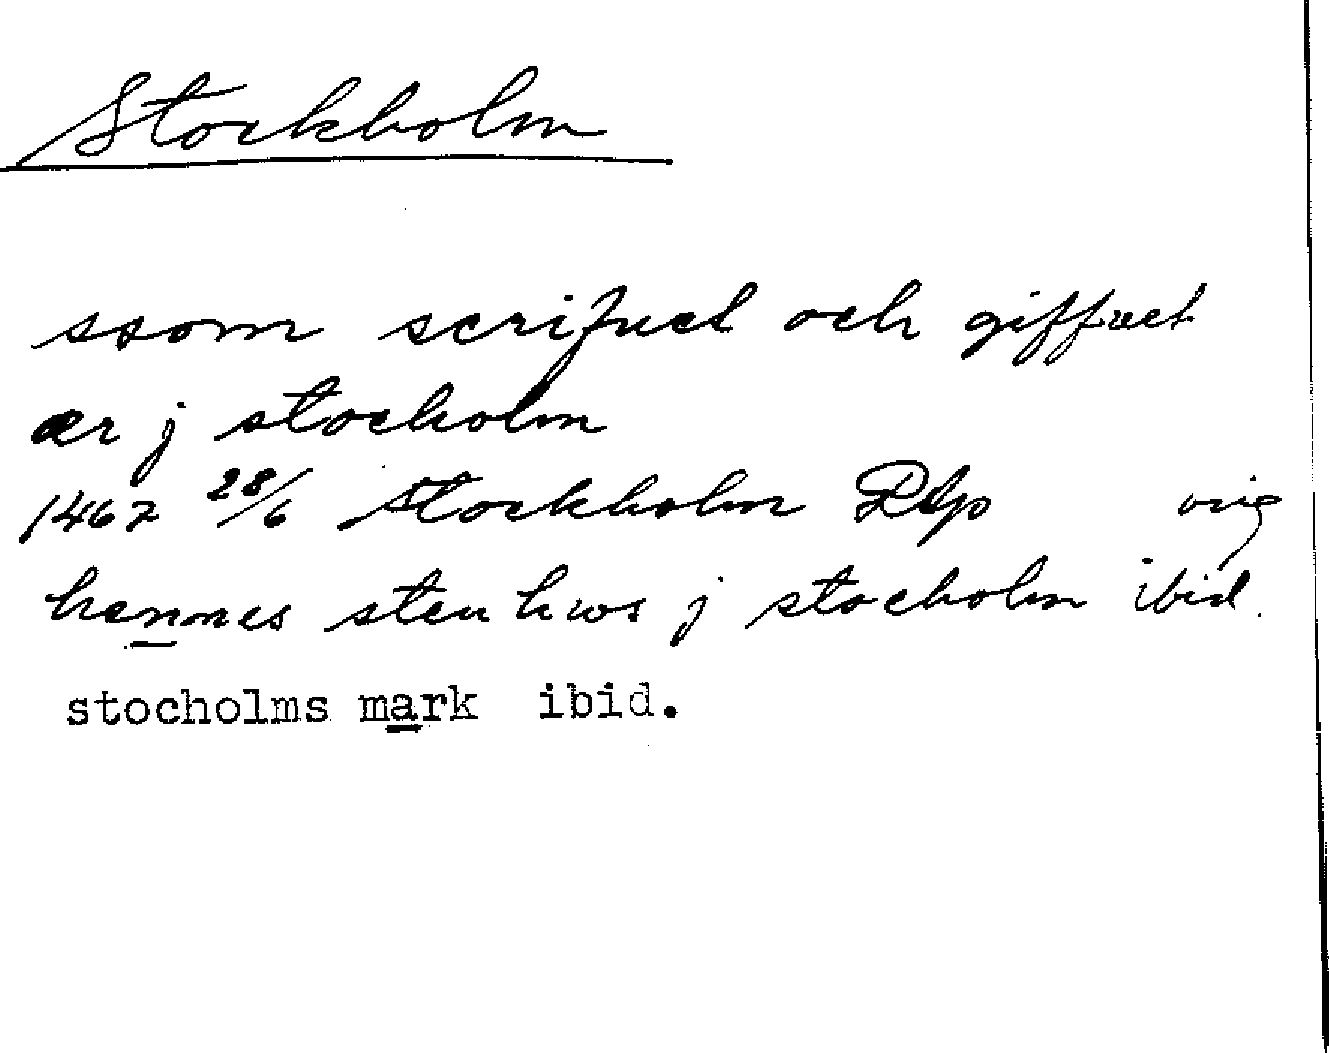 Stockholm
ssom scrifuet och giffuet
ær j stocholm
1467 28/6 Stockholm Rep orig
hennes stenhws j stocholm ibid.
stocholms mark ibid.